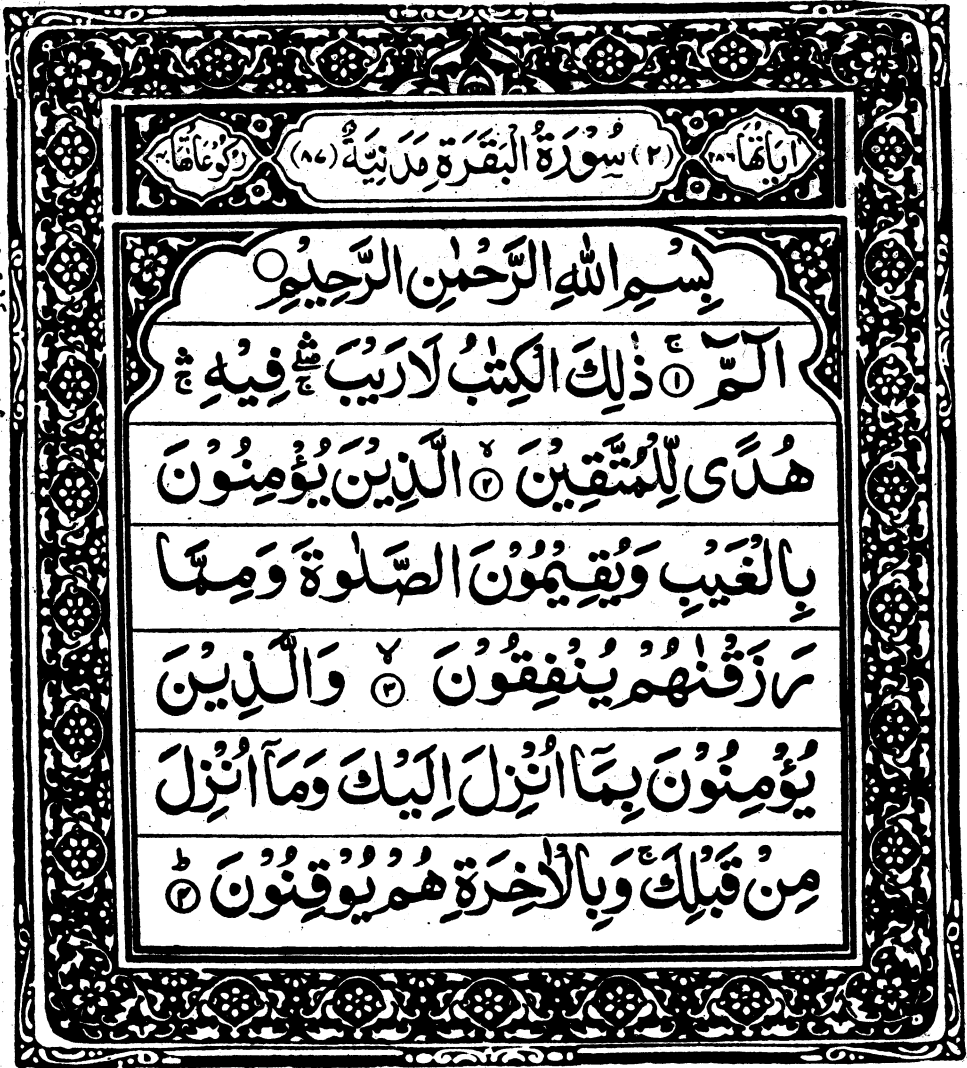 اٰيَاتُهَا ٢٨٦ (٢) سُوْرَةُ الْبَقَرَةِ مَدَنِيَّةٌ (٨٧) رُكُوْعَاتُهَا
بِسْمِ اللّٰهِ الرَّحْمٰنِ الرَّحِيْمِ
الٓمّٓ ۚ ١ ذٰلِكَ الْكِتٰبُ لَا رَيْبَ ۛۖۚ فِيْهِ ۛۚ
هُدًى لِّلْمُتَّقِيْنَ ۙ ٢ الَّذِيْنَ يُؤْمِنُوْنَ
بِالْغَيْبِ وَيُقِيْمُوْنَ الصَّلٰوةَ وَمِمَّا
رَزَقْنٰهُمْ يُنْفِقُوْنَ ۙ ٣ وَالَّذِيْنَ
يُؤْمِنُوْنَ بِمَآ اُنْزِلَ اِلَيْكَ وَمَآ اُنْزِلَ
مِنْ قَبْلِكَ ۚ وَبِالْاٰخِرَةِ هُمْ يُوْقِنُوْنَ ؕ ٤